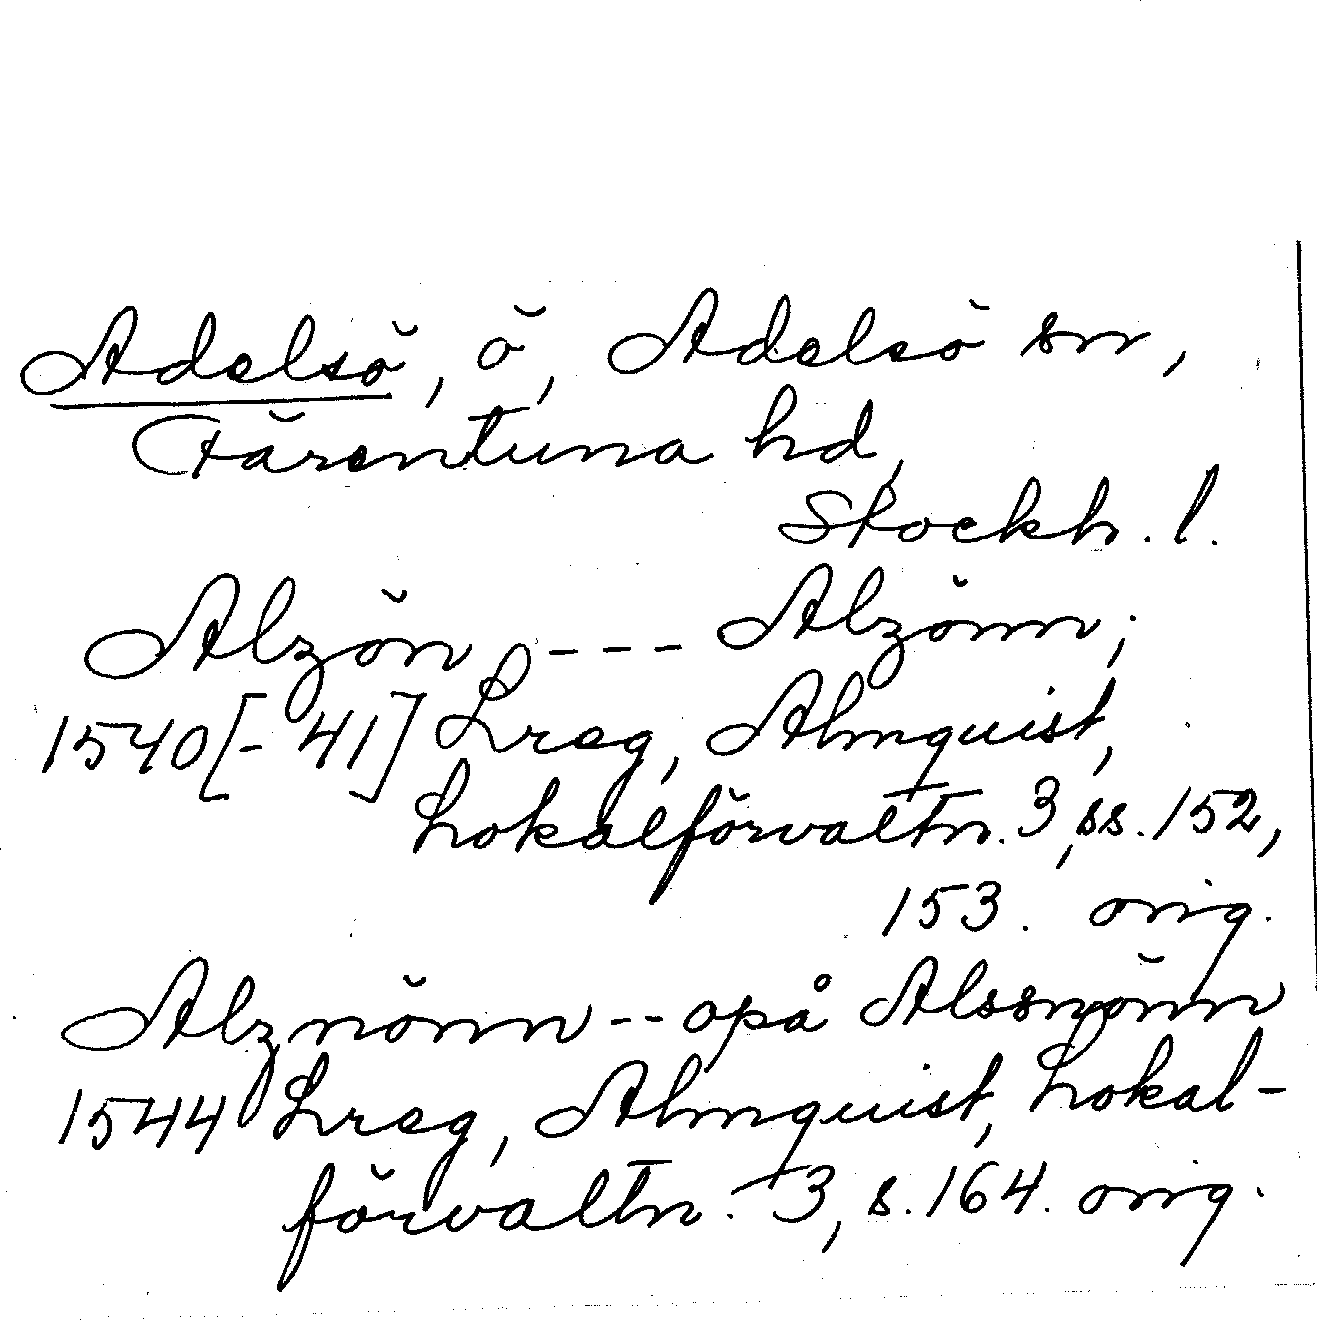 Adelsö, ö, Adelsö sn,
Färentuna hd,
Stockh. l.
Alzön, --- Alzönn;
1540[-41] Lreg, Almquist,
Lokalförvaltn. 3, ss. 152,
153. orig.
Alznönn -- opå Alssnönn
1544 Lreg, Almquist, Lokal-
förvaltn. 3, s. 164. orig.